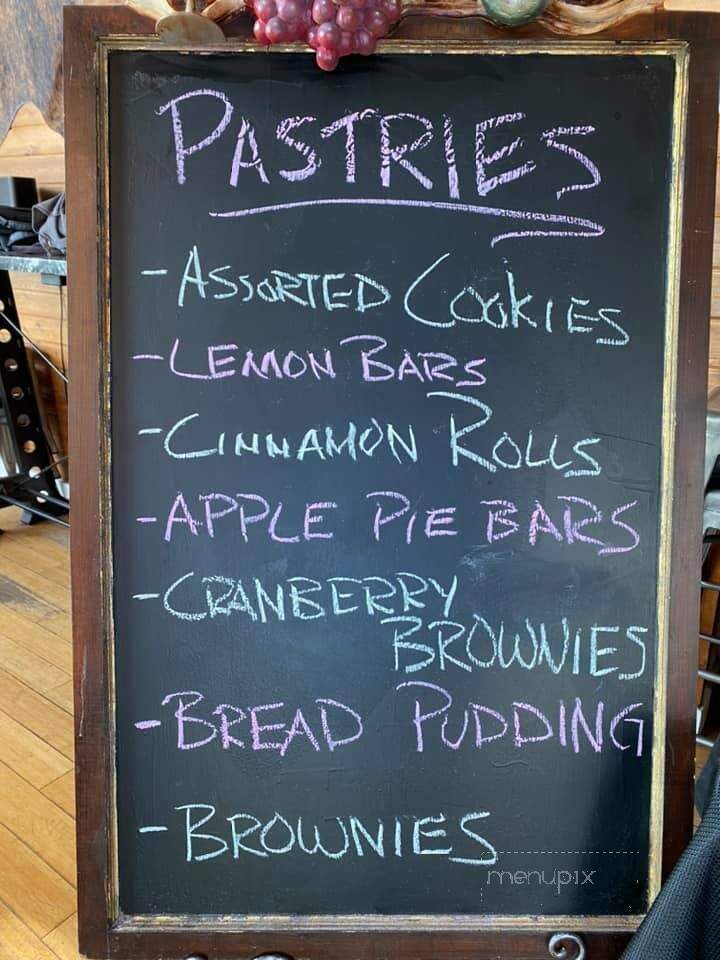 PASTRIES
- ASSORTED COOKIES
- LEMON BARS
- CINNAMON ROLLS
- APPLE PIE BARS
- CRANBERRY
BROWNIES
- BREAD PUDDING
- BROWNIES
menupix